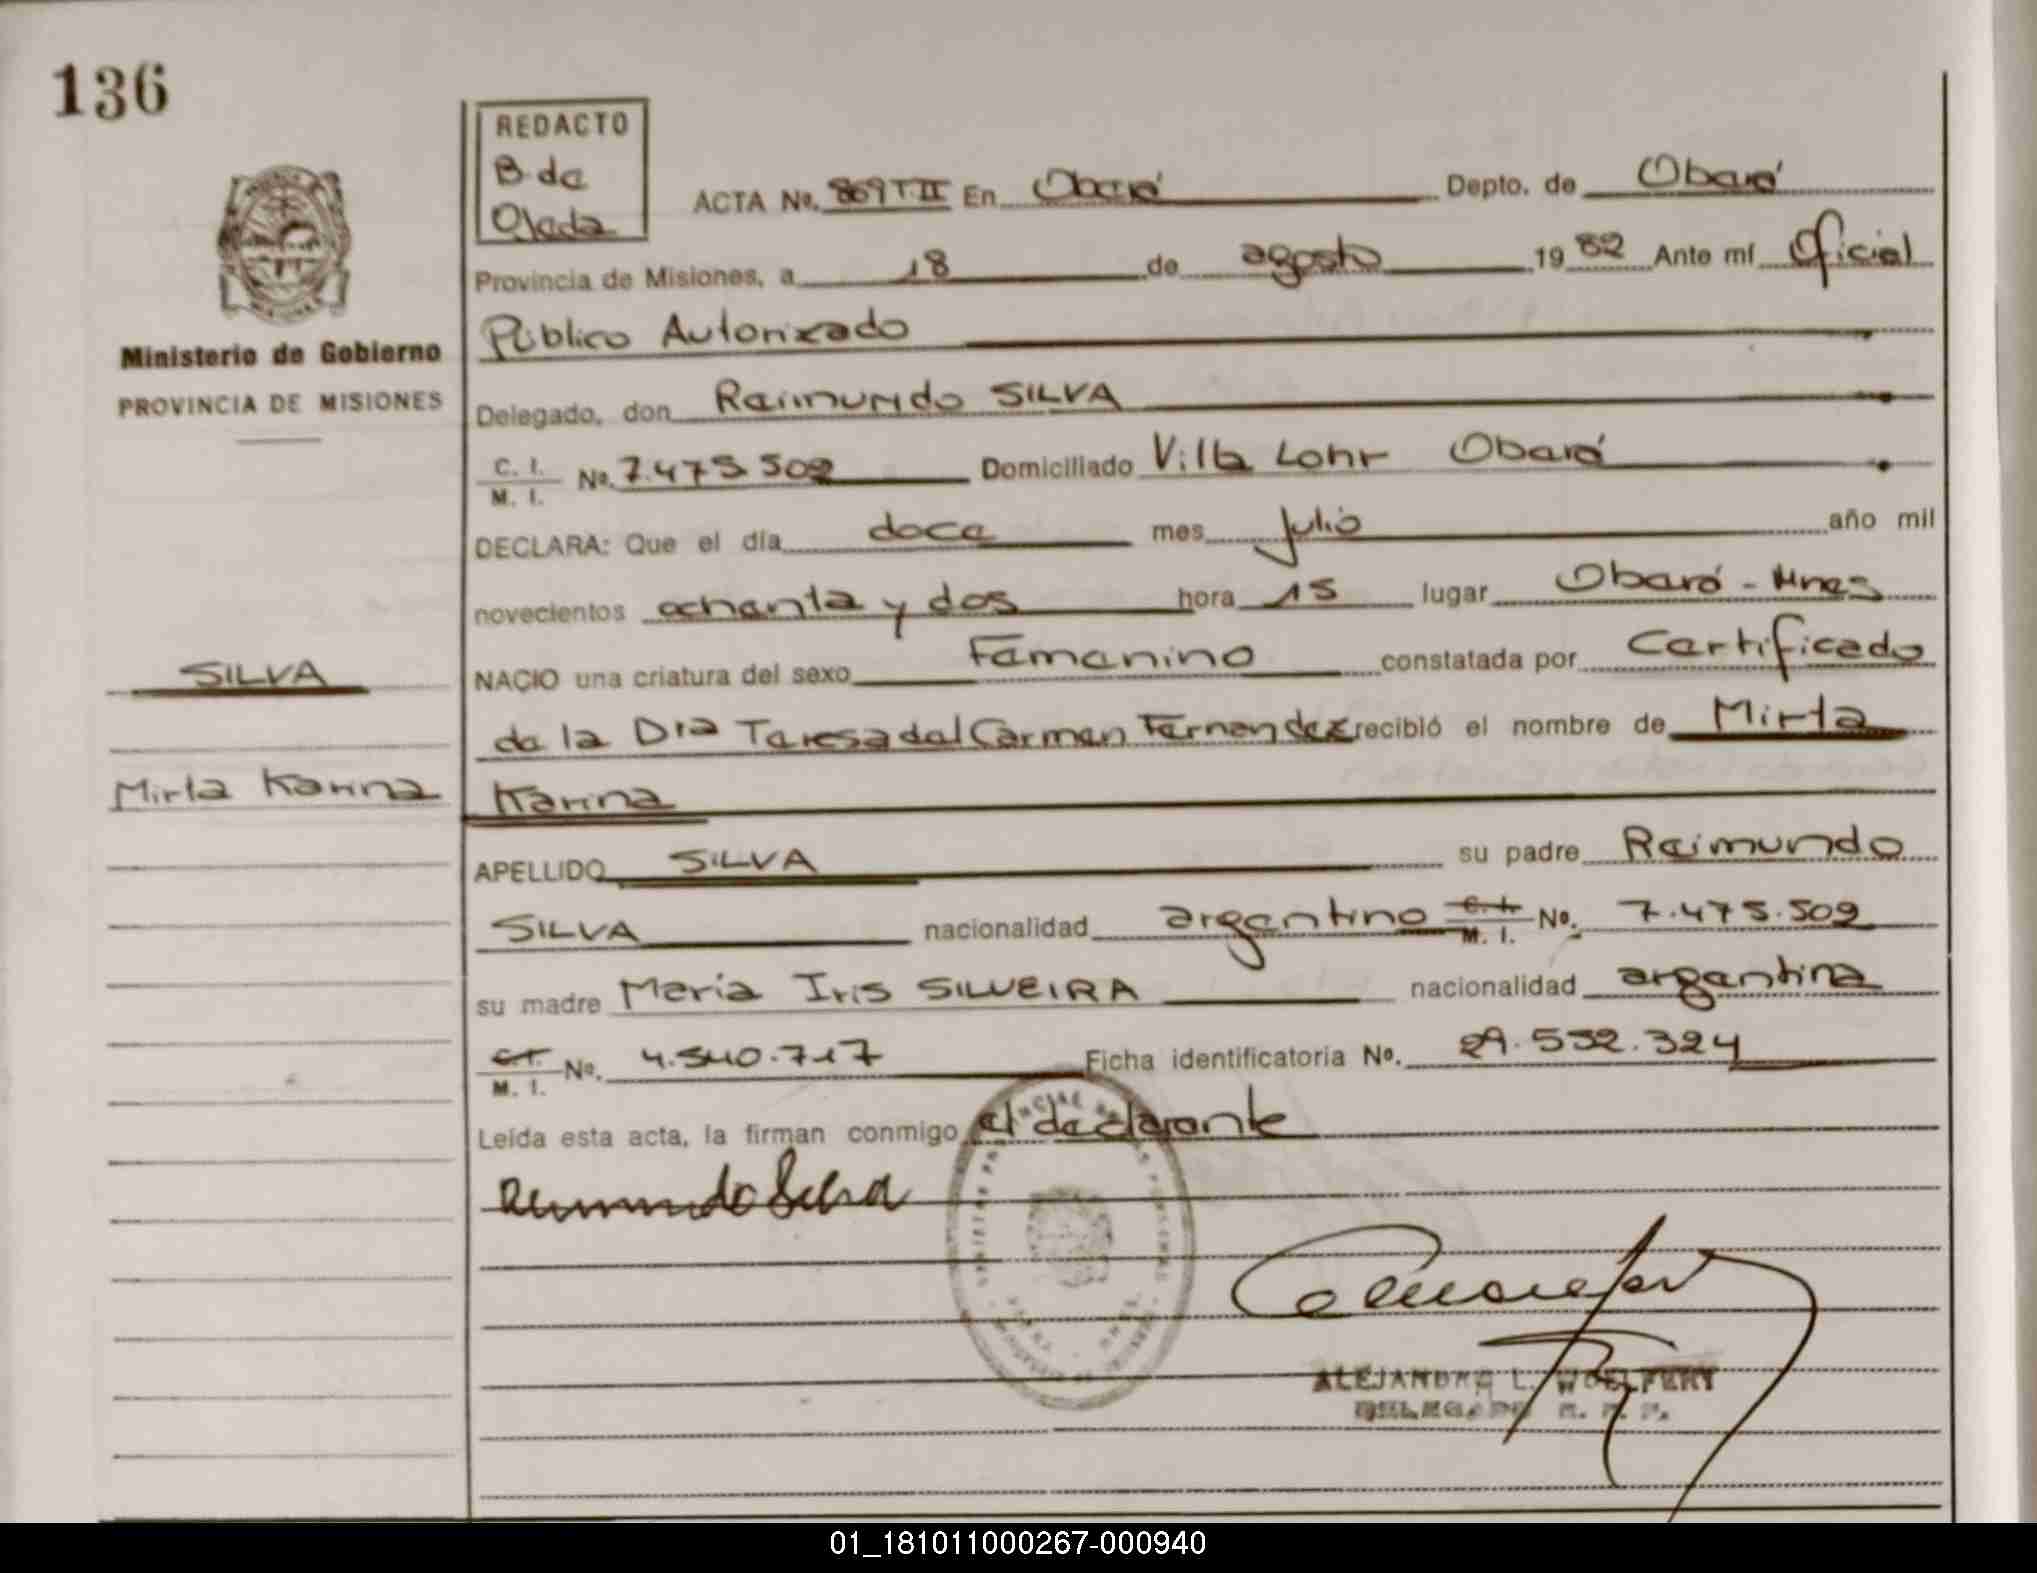 136
REDACTO
B. de
Ojeda
ACTA No. 869 T II En Oberá Depto. de Oberá
Provincia de Misiones, a 18 de agosto 1982 Ante mí Oficial
Público Autorizado
Ministerio de Gobierno
PROVINCIA DE MISIONES
Delegado, don Raimundo SILVA
C. I.
M. I. No. 7.475.509 Domiciliado Villa Lohr Oberá
DECLARA: Que el día doce mes Julio año mil
novecientos ochenta y dos hora 15 lugar Oberá - Mnes
SILVA
NACIO una criatura del sexo Femenino constatada por Certificado
de la Dra Teresa del Carmen Fernandez recibió el nombre de Mirta
Mirta Karina
Karina
APELLIDO SILVA su padre Raimundo
SILVA nacionalidad argentino C. I. M. I. No. 7.475.509
su madre María Iris SILVEIRA nacionalidad argentina
C. I.
M. I. No. 4.540.717 Ficha identificatoria No. 29.532.324
Leída esta acta, la firman conmigo el declarante
Raimundo Silva
ALEJANDRO L. WOELFERT
DELEGADO
01_181011000267-000940